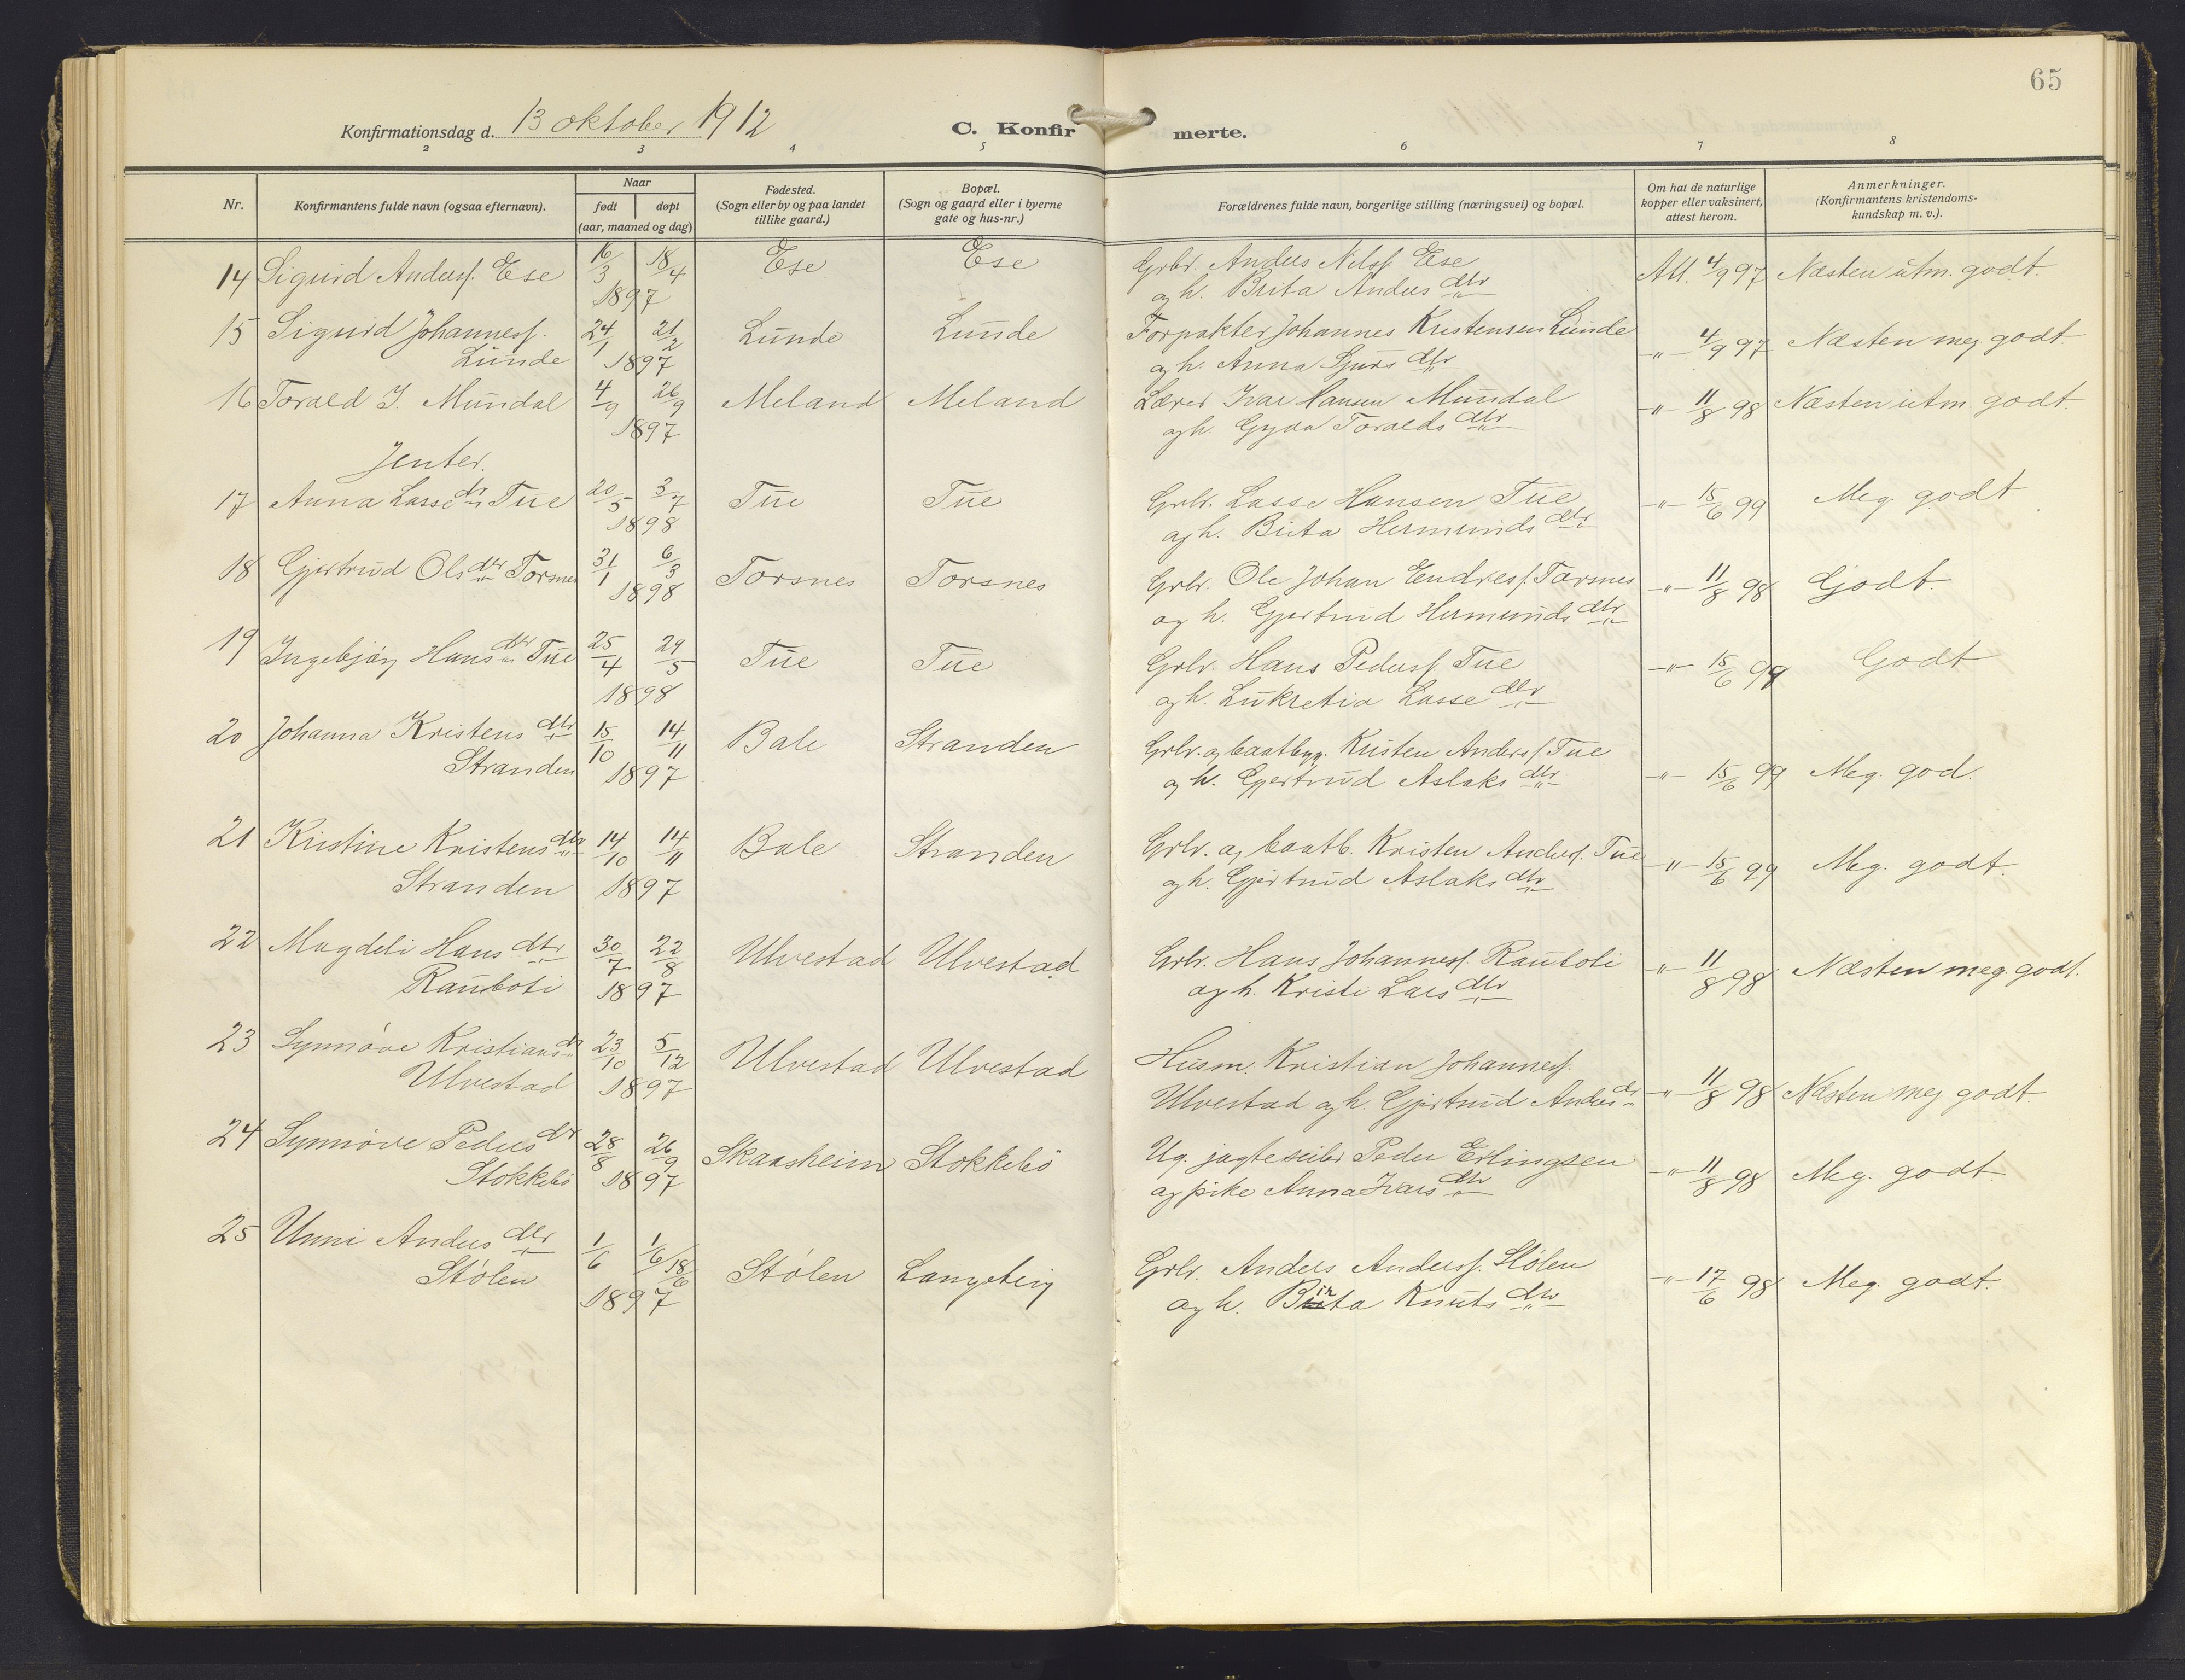 65
Konfirmationsdag d. 13 oktober 1912
C. Konfirmerte.
2 3 4 5 6 7 8
Nr.
Konfirmantens fulde navn (ogsaa efternavn).
Naar
født
døpt
(aar, maaned og dag)
Fødested.
(Sogn eller by og paa landet
tillike gaard.)
Bopæl.
(Sogn og gaard eller i byerne
gate og hus-nr.)
Forældrenes fulde navn, borgerlige stilling (næringsvei) og bopæl.
Om hat de naturlige
kopper eller vaksinert,
attest herom.
Anmerkninger.
(Konfirmantens kristendoms-
kundskap m. v.).
14 Sigurd Anders. Ese 16/3 18/4 Ese Ese Grbr. Anders Nilss. Ese Att. 4/9 97 Næsten utm. godt.
1897 og h. Brita Anders dtr
15 Sigurd Johanness. 24/1 21/2 Lunde Lunde Forpakter Johannes Kristensen Lunde -"- 4/9 97 Næsten meg. godt.
Lunde 1897 og h. Anna Sjurs dtr
16 Torald I. Mundal 4/9 26/9 Meland Meland Lærer Ivar Hansen Mundal -"- 11/8 98 Næsten utm. godt.
1897 og h. Gyda Toralds dtr
Jenter.
17 Anna Lasse dtr Tue 20/5 3/7 Tue Tue Grbr. Lasse Hansen Tue -"- 15/6 99 Meg. godt
1898 og h. Brita Hermunds dtr
18 Gjertrud Ols dtr Torsnes 31/1 6/3 Torsnes Torsnes Grbr. Ole Johan Endres. Torsnes -"- 11/8 98 Godt.
1898 og h. Gjertrud Hermunds dtr
19 Ingebjørg Hans dtr Tue 25/4 29/5 Tue Tue Grbr. Hans Peders. Tue -"- 15/6 99 Godt
1898 og h. Lukretia Lasse dtr
20 Johanna Kristens dtr 15/10 14/11 Bale Stranden Grbr. og baatbyg. Kristen Anders. Tue -"- 15/6 99 Meg. god.
Stranden 1897 og h. Gjertrud Aslaks dtr
21 Kristine Kristens dtr 14/10 14/11 Bale Stranden Grbr. og baatb. Kristen Anders. Tue -"- 15/6 99 Meg. godt.
Stranden 1897 og h. Gjertrud Aslaks dtr
22 Magdeli Hans dtr 30/7 22/8 Ulvestad Ulvestad Grbr. Hans Johanness. Rauboti -"- 11/8 98 Næsten meg. godt.
Rauboti 1897 og h. Kristi Lars dtr
23 Synnøve Kristians dr 23/10 5/12 Ulvestad Ulvestad Husm. Kristian Johanness.
Ulvestad 1897 Ulvestad og h. Gjertrud Anders dr -"- 11/8 98 Næsten meg. godt.
24 Synnøve Peders dr 28/8 26/9 Skaasheim Stokkebø Ug. jagteseiler Peder Erlingsen -"- 11/8 98 Meg. godt.
Stokkebø 1897 og pike Anna Ivars dtr
25 Unni Anders dtr 1/6 1/6 18/6 Stølen Langeteig Grbr. Anders Anders. Stølen -"- 17/6 98 Meg. godt.
Stølen 1897 og h. Birta Knuts dtr